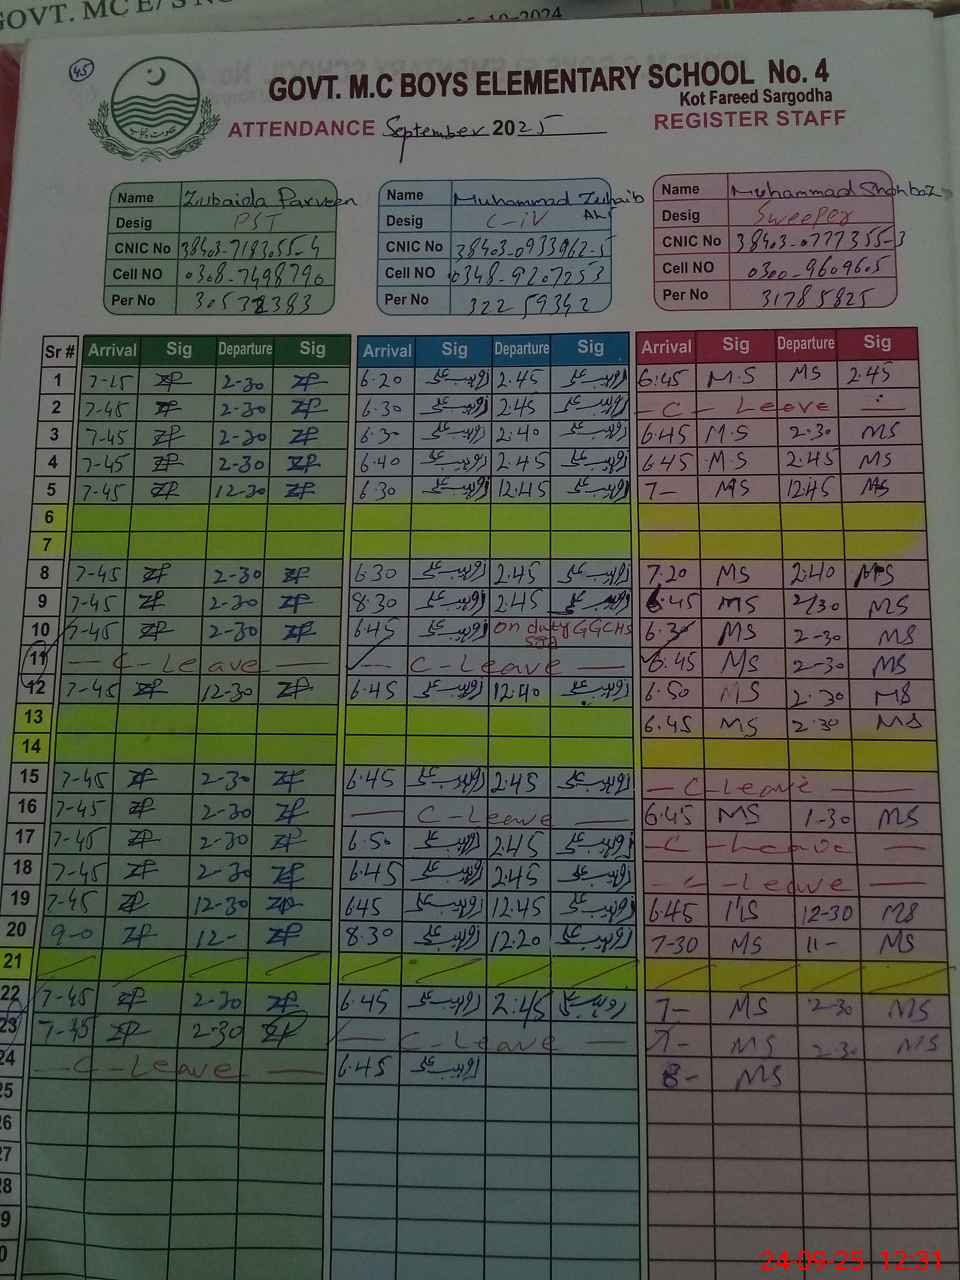 GOVT. MC E/S NO
10-2024
45
GOVT. M.C BOYS ELEMENTARY SCHOOL No. 4
Kot Fareed Sargodha
ATTENDANCE September 2025 REGISTER STAFF
حکومت پنجاب
Name Zubaida Parveen Name Muhammad Zuhaib Name Muhammad Shahbaz
Desig PST Desig C-iV Desig Sweeper
CNIC No 38403-7183055-4 CNIC No 38403-0933962-5 CNIC No 38403-0777355-3
Cell NO 0308-7498790 Cell NO 0348-9207253 Cell NO 0300-9609605
Per No Per No 32259342 Per No 31785825
Sr # Arrival Sig Departure Sig Arrival Sig Departure Sig Arrival Sig Departure Sig
1 7-15 ZP 2-30 ZP 6.20 2.45 6.45 M.S MS 2.45
2 7-45 ZP 2-30 ZP 6.30 2.45 - C - Leeve
3 7-45 ZP 2-30 ZP 6.30 2.40 6.45 M.S 2.30 MS
4 7-45 ZP 2-30 ZP 6.40 2.45 6.45 M.S 2.45 MS
5 7-45 ZP 12-30 ZP 6.30 12.45 7- MS 12.45 MS
6
7
8 7-45 ZP 2-30 ZP 6.30 2.45 7.20 MS 2.40 MS
9 7-45 ZP 2-30 ZP 8.30 2.45 6.45 MS 2/30 MS
10 7-45 ZP 2-30 ZP 6.45 on duty GGCHS 6.30 MS 2-30 MS
11 - C-Leave - - C-Leave - 6.45 MS 2-30 MS
12 7-45 ZP 12-30 ZP 6.45 12.40 6.50 MS 2.30 MS
13 6.45 MS 2.30 MS
14
15 7-45 ZP 2-30 ZP 6.45 2.45 - C-Leave -
16 7-45 ZP 2-30 ZP - C-Leave - 6.45 MS 1-30 MS
17 7-45 ZP 2-30 ZP 6.50 2.45 - C-Leave -
18 7-45 ZP 2-30 ZP 6.45 2.45 - C-Leave -
19 7-45 ZP 12-30 ZP 645 12.45 6.45 MS 12-30 MS
20 9-0 ZP 12- ZP 8.30 12.20 7-30 MS 11- MS
21
22 7-45 ZP 2-30 ZP 6.45 2.45 7- MS 2-30 MS
23 7-45 ZP 2-30 ZP - C-Leave - 7- MS 2.30 MS
24 - C-Leave - 6.45 8- MS
25
26
27
28
9
0
24-09-25 12:31